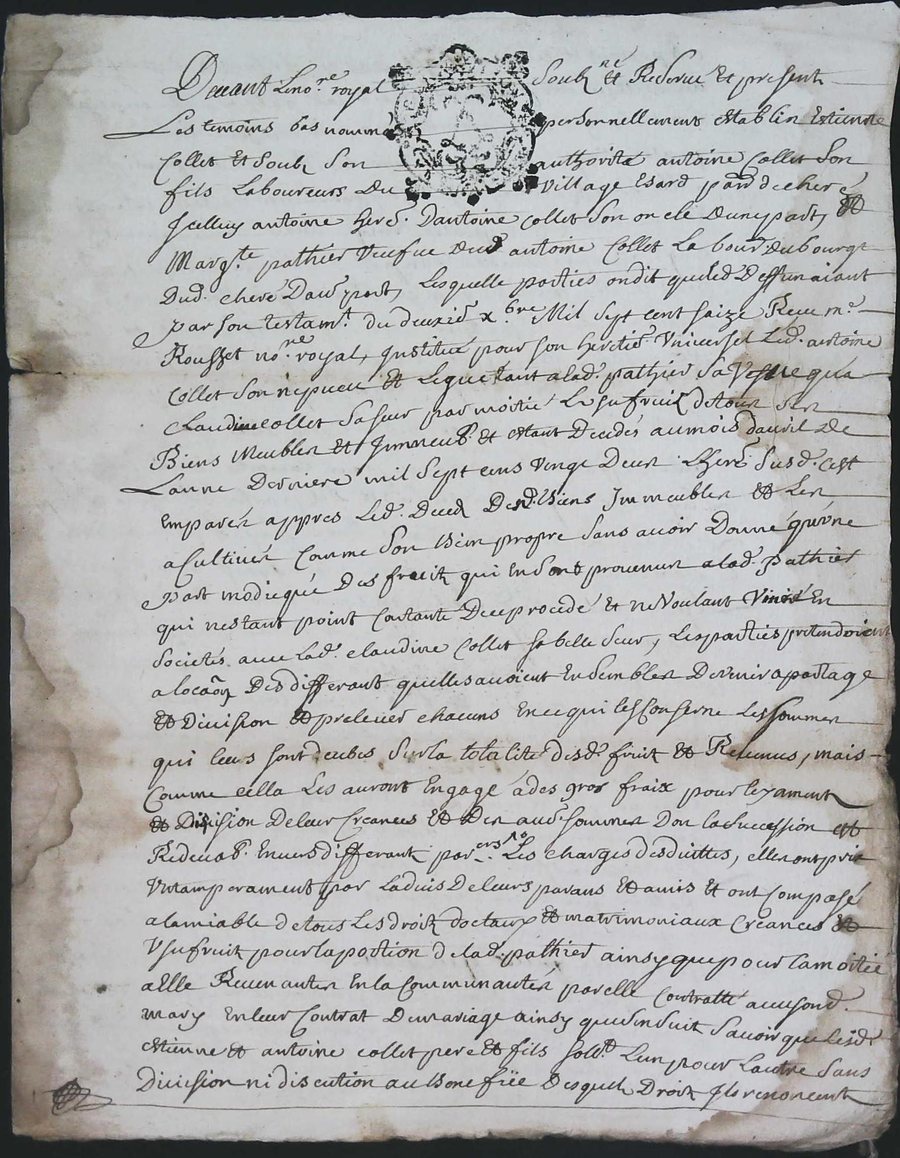 Devant Le no.re royal soubz.né et Reservé et present
Les temoins bas nommé personnellement establis Estienne
Collet et soubz son authorité antoine Collet son
fils Laboureurs du village Esard par.sse de cheré
Jcelluy antoine herē. D'antoine Collet son oncle d'une part, et
Marg.te pathier veufve dud. antoine Collet La bour. du bourg
Dud. cheré D'au.e part, Lesquelle parties ont dit que led. Deffunt aiant
par son testam.t du deuxie. x.bre Mil sept cent saize Receu m.e
Rousset no.re royal, institué pour son heritie. Universel Led. antoine
Collet son nepveu et Leguê tant a lad. pathier sa vefve qu'a
Claudine Collet sa seur par moitié Lusufruit de tous ses
Biens Meubles et Jmmeub. et estant Decedés au mois d'avril de
Lanné Derniere mil sept cens vingt deux L'here. susd. c'est
emparés appres Led. Deced Desd. biens Jmmeubles et Les
a Cultivés Comme son bien propre sans avoir Donné qu'une
part modicque Des fruits qui en sont provenus a lad. Pathier
qui n'estant point Contante De ce procedé et ne voulant vivre En
societés avec lad. claudine Collet sa belle seur, Les parties pretendoient
a locaōn Des differant quelles avoient Ensembles De venir a partage
et Division et prelever chacuns en ce qui les Conserne Les sommes
qui leurs sont deubes sur la totalité desd. fruit et Revenus, mais
Comme cella Les auront Engagé a des gros fraix pour le payament
et Division de leur Creances et Des au.e sommes Don la succession est
Redevab. Envers differant par.ers Les charges desduittes, elles ont pris
Un tamperament par Laduis De leurs parans et amis et ont Composé
a lamiable de tous Les droits doctaux et matrimoniaux Creances et
Usufruit pour la portion de lad. pathier ainsy que pour la moitié
a Elle Revenantes En la Communautés par elle Contratté avec sond.
mary En leur Contrat De mariage ainsy que sensuit Savoir que lesd.
Etienne et antoine Collet pere et fils soll.t Lun pour Lautre sans
Division ni discution au Benefice Desquels Droits Jls renoncent